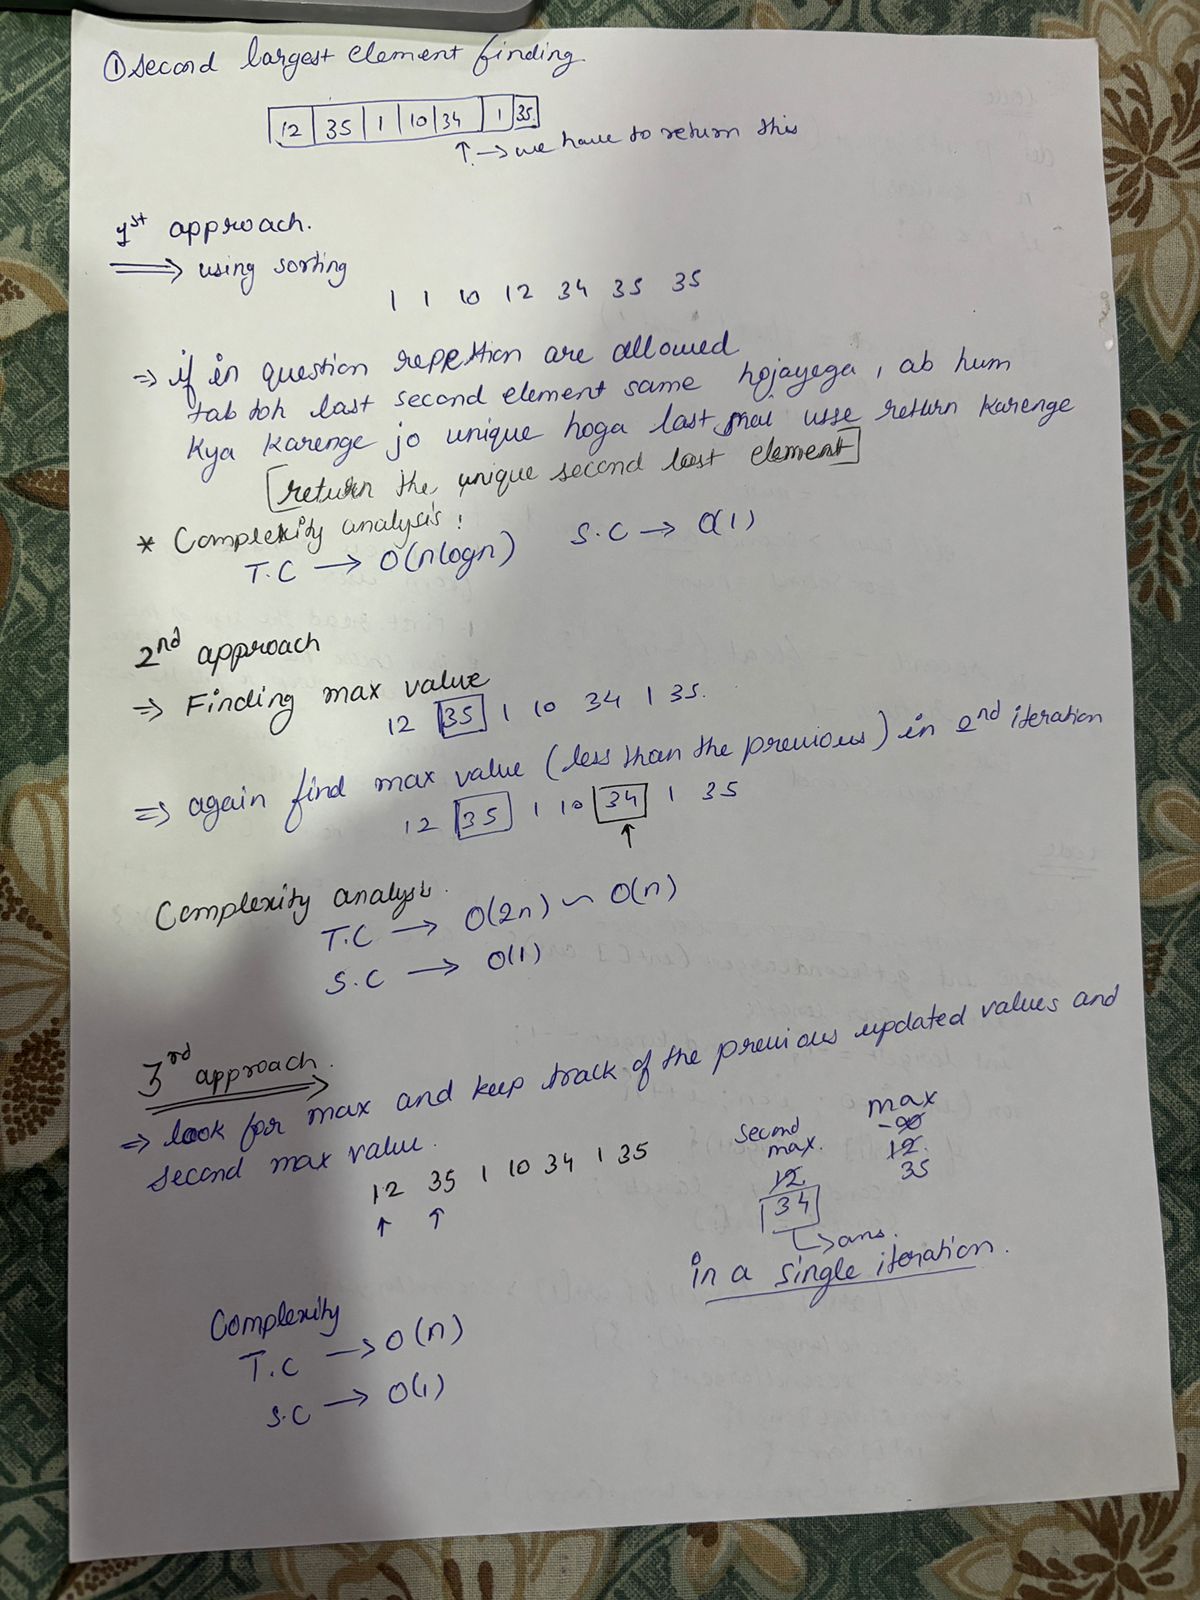 ① Second largest element finding.
12 35 1 10 34 1 35
↑ → we have to return this
1st approach.
⟹ using sorting
1 1 10 12 34 35 35
⇒ if in question repettion are allowed
tab toh last second element same hojayega, ab hum
kya karenge jo unique hoga last mai usse return karenge
[return the unique second last element]
* Complexity analysis:
T.C → O(nlogn) S.C → O(1)
2nd approach
⇒ Finding max value
12 35 1 10 34 1 35.
⇒ again find max value (less than the previous) in 2nd iteration
12 35 1 10 34 1 35
↑
Complexity analysis.
T.C → O(2n) ~ O(n)
S.C → O(1)
3rd approach.
⇒ look for max and keep track of the previous updated values and
second max value.
12 35 1 10 34 1 35
↑ ↑
second max.
12
34
↳ ans.
max
-∞
12.
35
in a single iteration.
Complexity
T.C → O(n)
S.C → O(1)